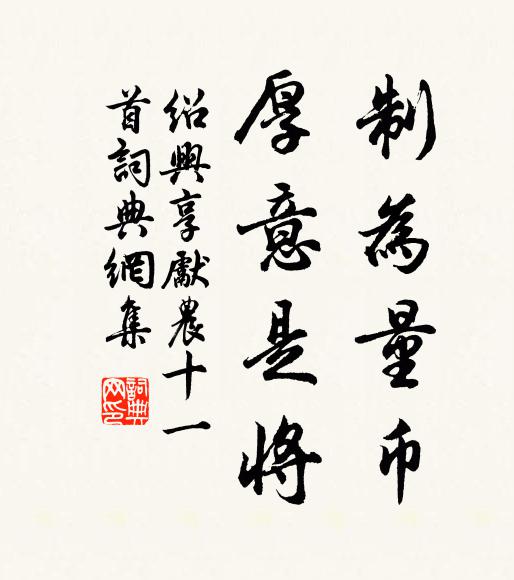 制為量幣
厚意是將
紹興享獻農十一
首詞典網集
詞典
网印